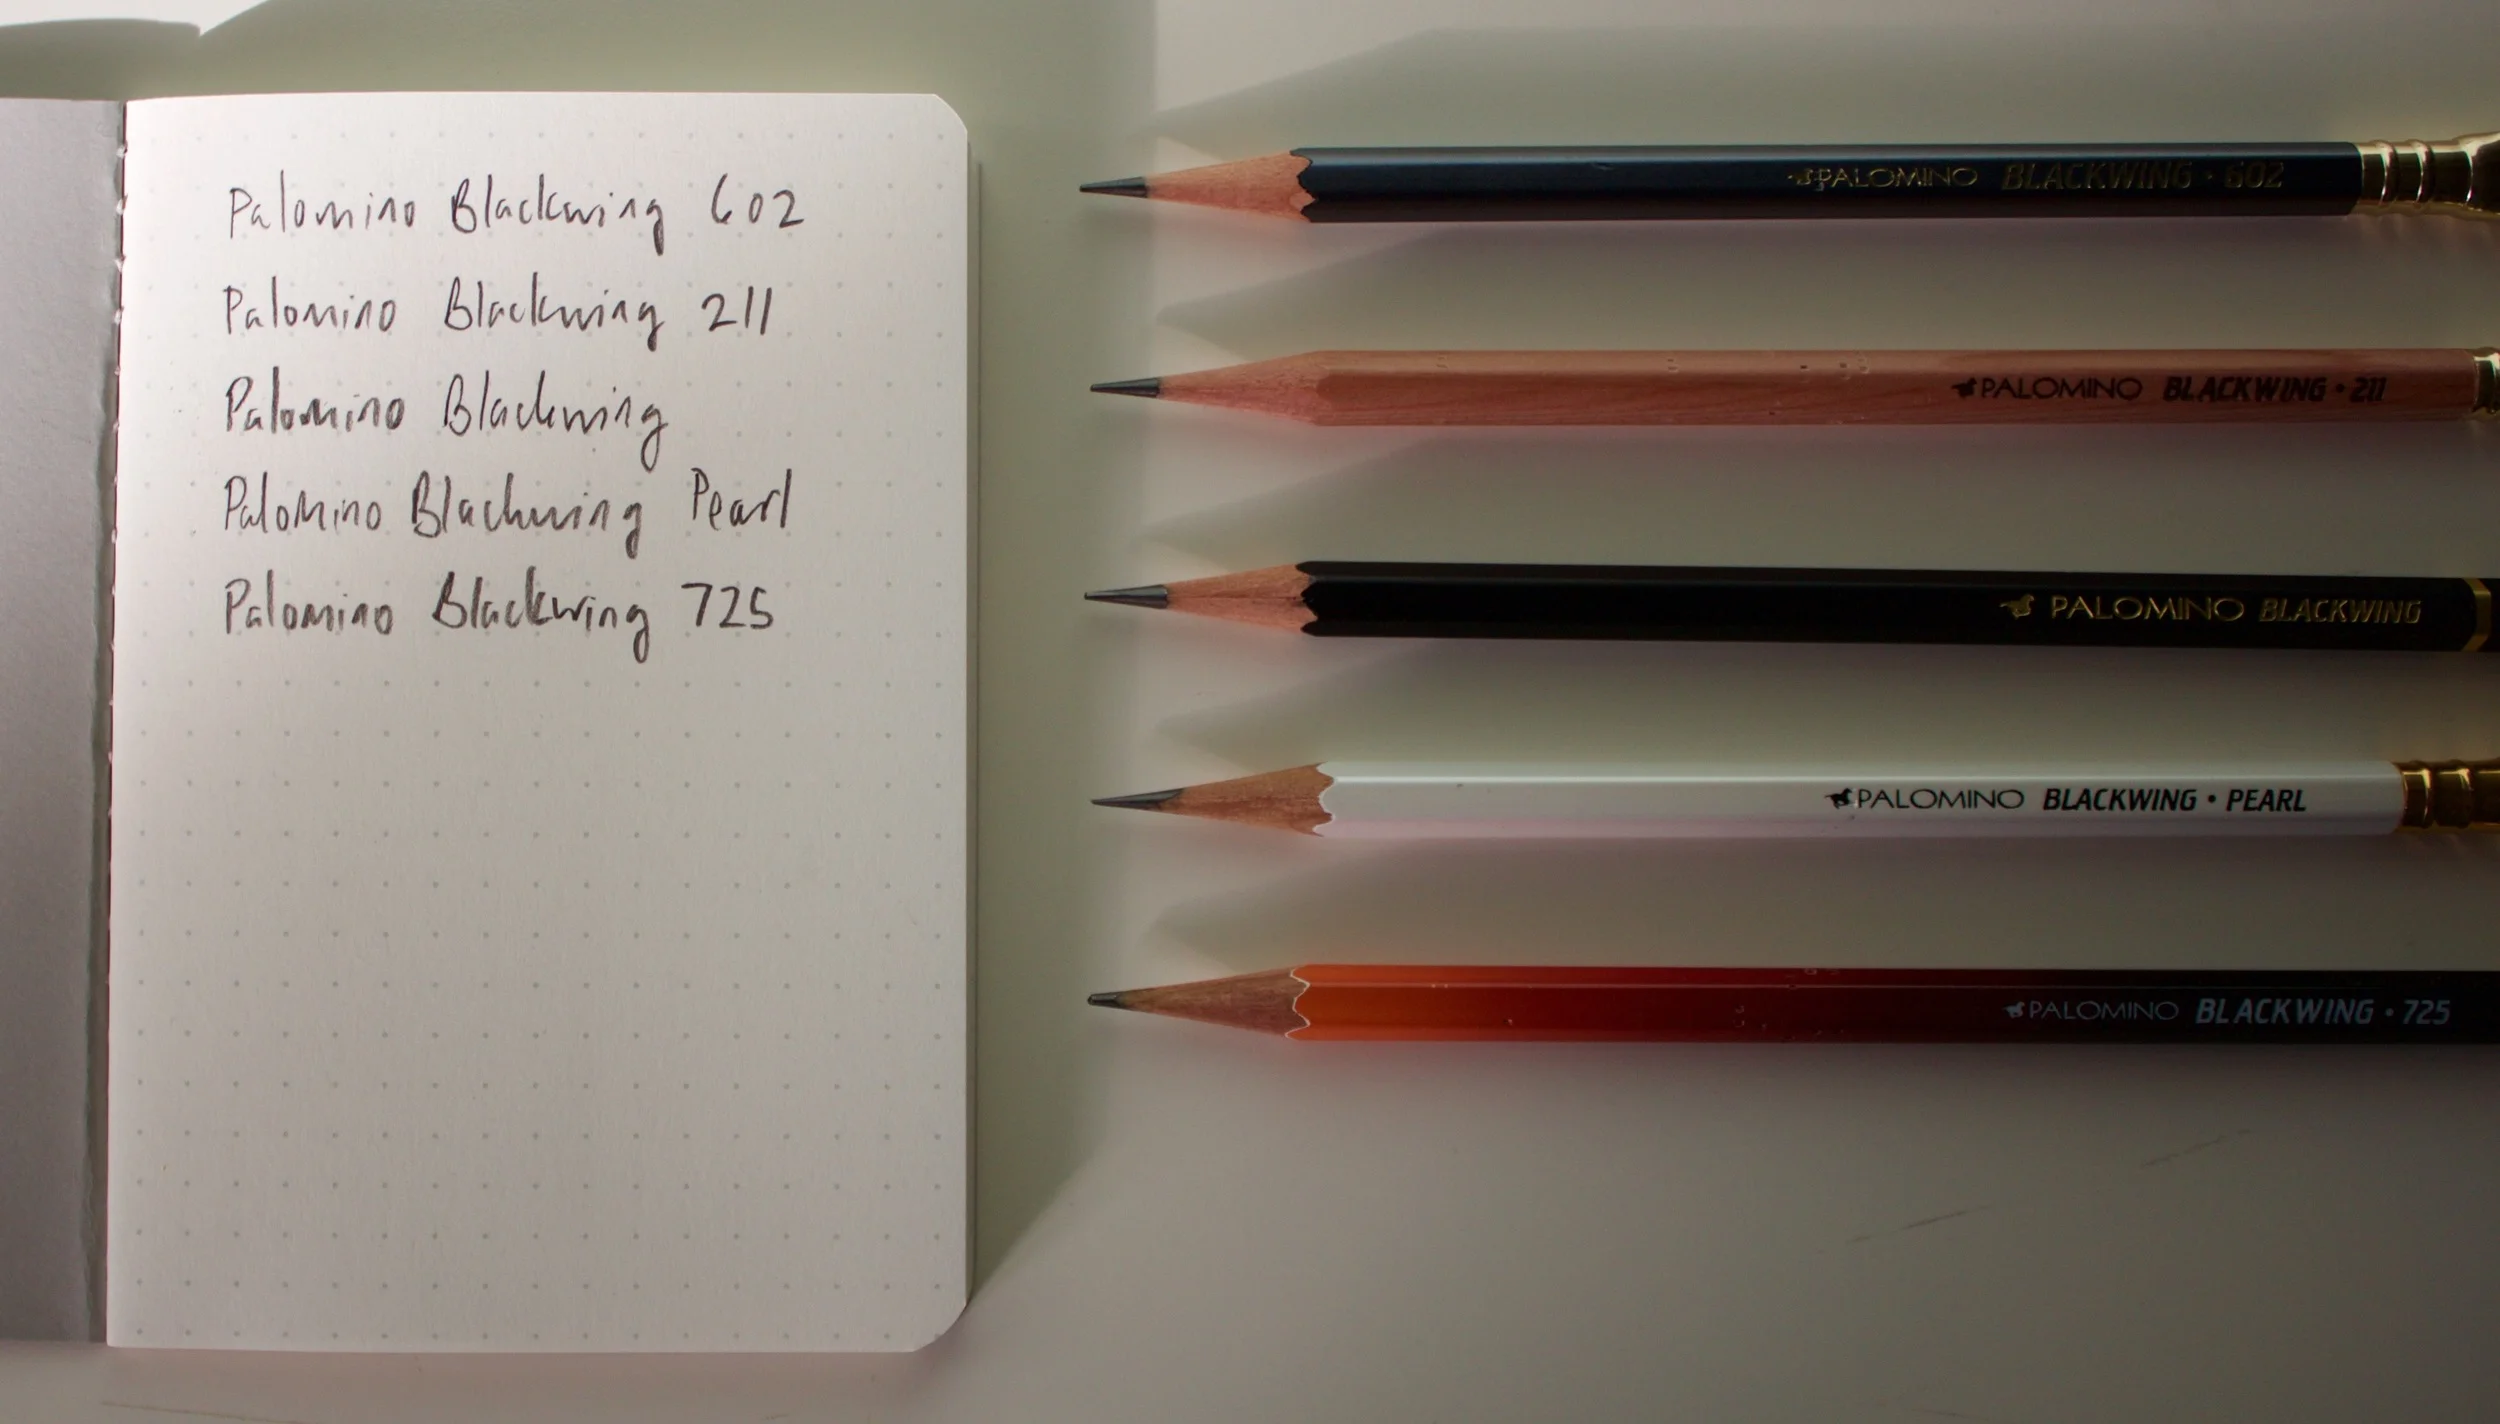 Palomino Blackwing 602
Palomino Blackwing 211
Palomino Blackwing
Palomino Blackwing Pearl
Palomino Blackwing 725
PALOMINO BLACKWING • 602
PALOMINO BLACKWING • 211
PALOMINO BLACKWING
PALOMINO BLACKWING • PEARL
PALOMINO BLACKWING • 725